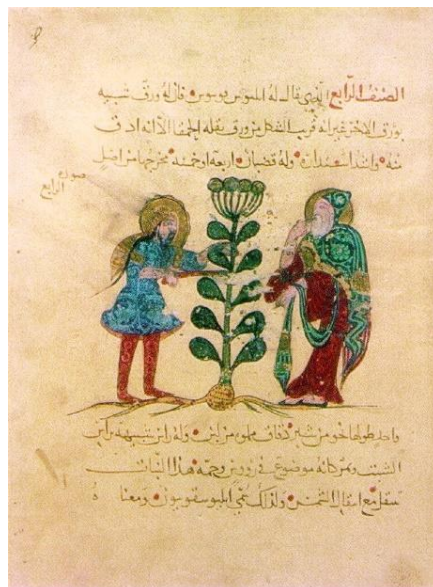 الصنف الرابع الذي يقال له ايليوس قوسوس فان له ورق شبيه
بورق الاخر غير انه قريب الشكل من ورق بقلة الحمقا الا انه ادق
منه واشد استدارة وله قضبان اربعة او خمسة مخرجها من اصل
صورة
الرابع
واحد طولها نحو من شبر دقاق مملوه من لبن وله راس شبيهة براس
الشبت وثمر كانه موضوع في رووس وجمة هذا النبات
تنتقل مع انتقال الشمس ولذلك سمي ومعناه